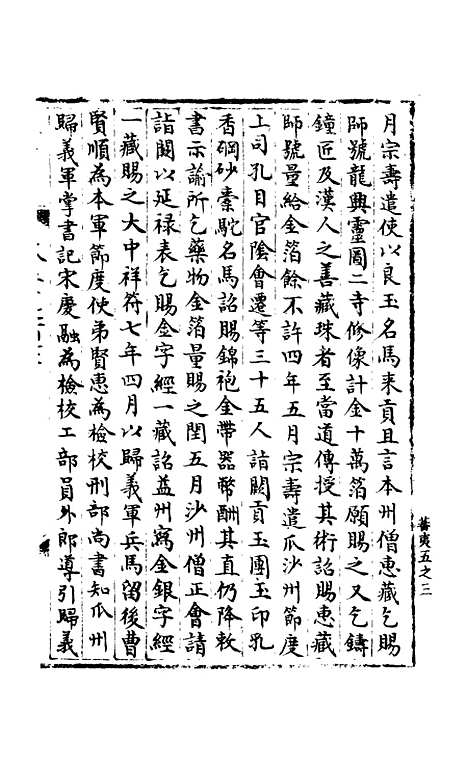 月宗壽遣使以良玉名馬來貢且言本州僧惠藏乞賜
師號龍興靈圖二寺修像計金十萬箔願賜之又乞鑄
鐘匠及漢人之善藏珠者至當道傳授其術詔賜惠藏
師號量給金箔餘不許四年五月宗壽遣瓜沙州節度
上司孔目官陰會遷等三十五人詣闕貢玉團玉印乳
香硇砂橐駝名馬詔賜錦袍金帶器幣酬其直仍降敕
書示諭所乞藥物金箔量賜之閏五月沙州僧正會請
詣闕以延祿表乞賜金字經一藏詔益州寫金銀字經
一藏賜之大中祥符七年四月以歸義軍兵馬留後曹
賢順為本軍節度使弟賢惠為檢校刑部尚書知瓜州
歸義軍掌書記宋慶融為檢校工部員外郎導引歸義
蕃夷五之三